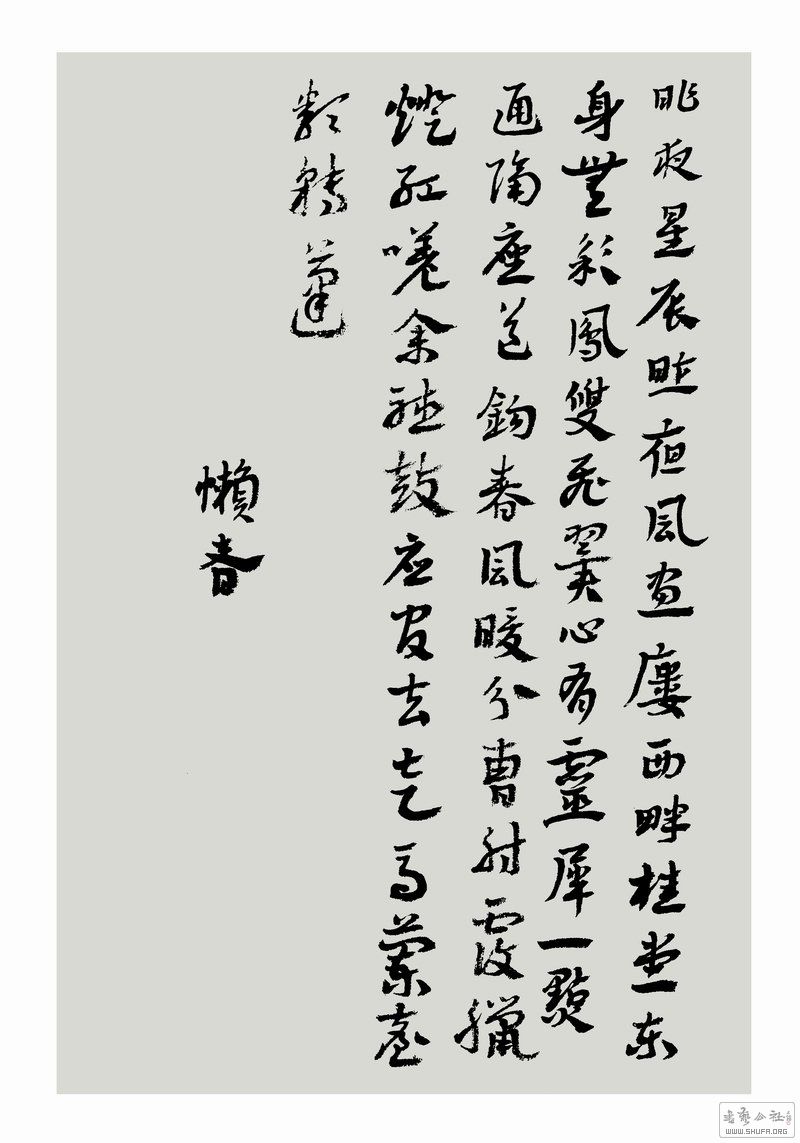 昨夜星辰昨夜風畫廔西畔桂堂东
身無彩鳳雙飛翼心有靈犀一點
通隔座送鉤春風暖分曹射覆臘
燈紅嗟余聽鼓应官去走馬蘭臺
類轉蓬
懶春
书艺公社
WWW.SHUFA.ORG